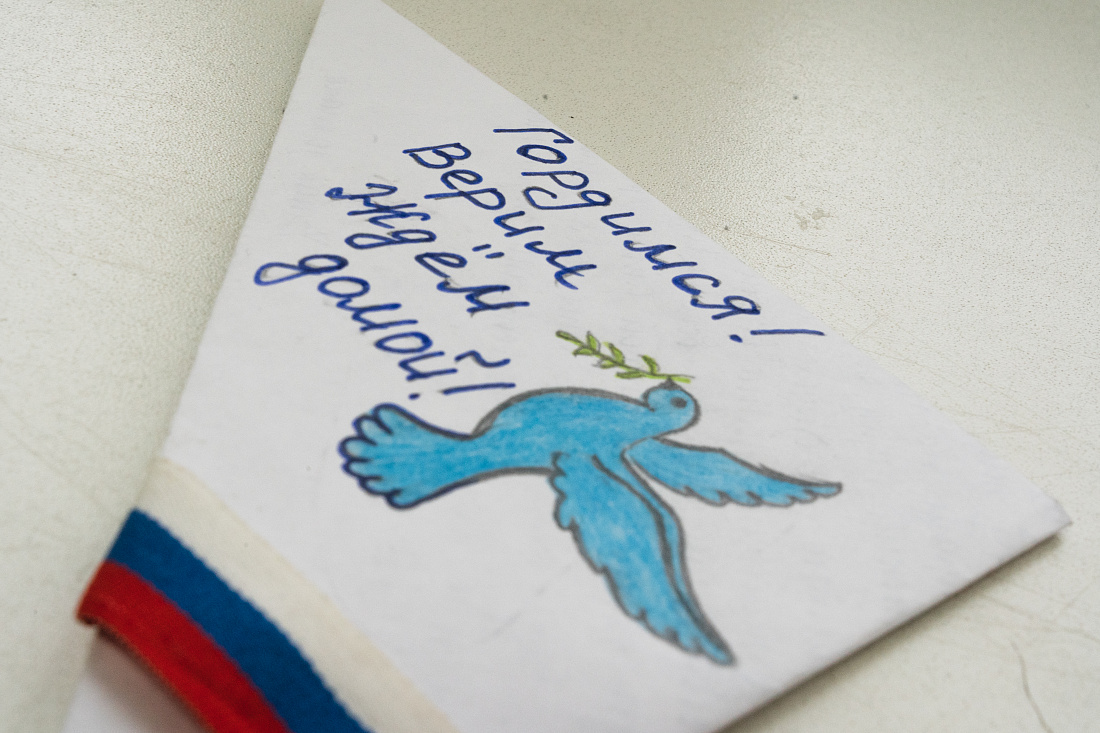 Гордимся!
Верим
Ждём
домой!